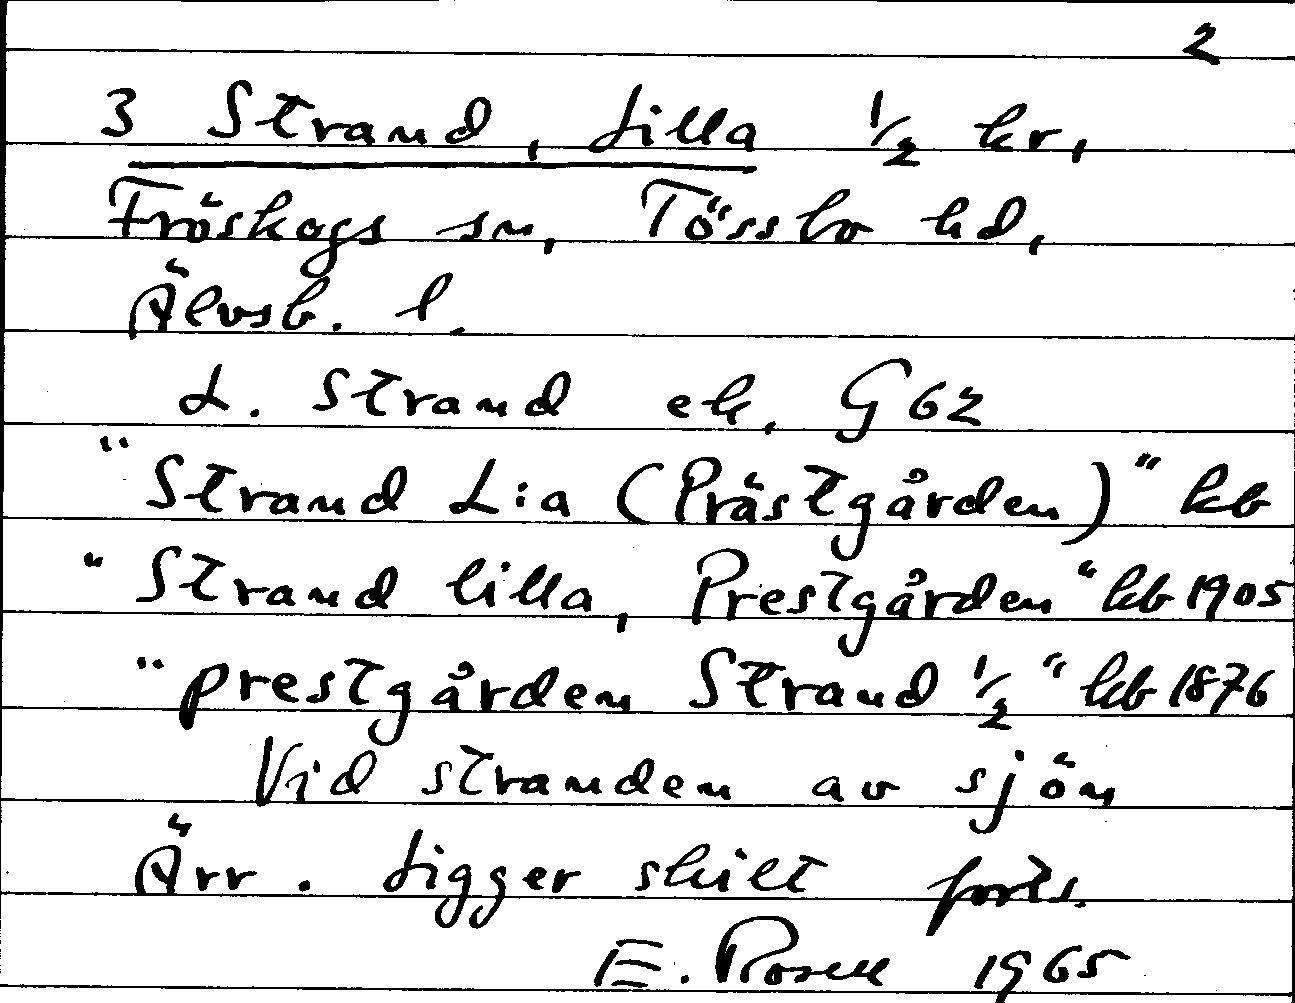 2
3 Strand, Lilla 1/2 kr,
Fröskogs sn, Tössbo hd,
Älvsb. l.
L. Strand ek. G 62
"Strand L:a (Prästgården)" kb
"Strand lilla, Prestgården" kb 1905
"prestgården Strand 1/2" kb 1876
Vid stranden av sjön
Ärr. Ligger skilt forts.
E. Rosell 1965